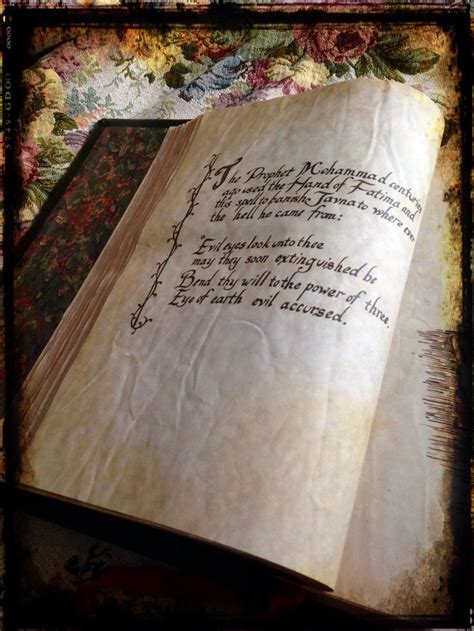 The Prophet Mohammad centuries
ago used the Hand of Fatima and
this spell to banish Javna to where ever
the hell he came from:
"Evil eyes look unto thee
may they soon extinguished be
Bend thy will to the power of three,
Eye of earth evil accursed.